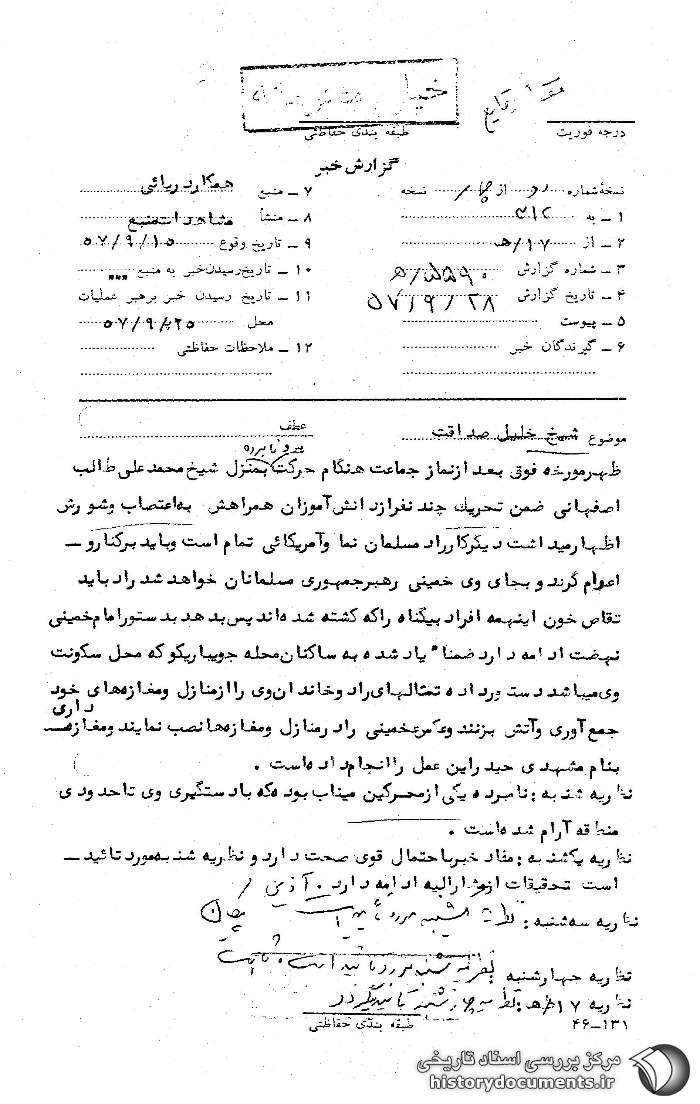 خیلی
طبقه بندی حفاظتی
درجه فوریت
گزارش خبر
نسخهٔ شماره دو از چهار نسخه
۱ ــ به ۳۱۲
۲ ــ از ۱۷/ه‍
۳ ــ شماره گزارش
۴ ــ تاریخ گزارش ۵۷/۹/۲۸
۵ ــ پیوست
۶ ــ گیرندگان خبر
۷ ــ منبع همکار دریائی
۸ ــ منشأ مشاهدات منبع
۹ ــ تاریخ وقوع ۵۷/۹/۱۵
۱۰ ــ تاریخ رسیدن خبر به منبع
۱۱ ــ تاریخ رسیدن خبر برهبر عملیات
محل ۵۷/۹/۲۵
۱۲ ــ ملاحظات حفاظتی
موضوع شیخ خلیل صداقت
عطف
ظهر مورخه فوق بعد از نماز جماعت هنگام حرکت بمنزل شیخ محمد علی طالب
اصفهانی ضمن تحریک چند نفر از دانش آموزان همراهش به اعتصاب و شورش
اظهار میداشت دیگر کار راد مسلمان نما وآمریکائی تمام است وباید برکنار و ــ
اعدام گردد و بجای وی خمینی رهبر جمهوری مسلمانان خواهد شد راد باید
تقاص خون اینهمه افراد بیگناه راکه کشته شده اند پس بدهد بدستور امام خمینی
نهضت ادامه دارد ضمناً یاد شده به ساکنان محله جویباریکو که محل سکونت
وی میباشد دستور داده تمثالهای راد وخاندان وی را از منازل ومغازه های خود
جمع آوری وآتش بزنند وعکس خمینی رادر منازل ومغازه ها نصب نمایند ومغازه داری
بنام مشهدی حیدر این عمل را انجام داده است .
نظریه شنبه : نامبرده یکی از محرکین میناب بوده که با دستگیری وی تا حدودی
منطقه آرام شده است .
نظریه یکشنبه : مفاد خبر با احتمال قوی صحت دارد و نظریه شنبه مورد تائید ــ
است تحقیقات از مشارالیه ادامه دارد . آذین
نظریه سه شنبه : نظریه یکشنبه مورد تایید است
نظریه چهارشنبه : نظریه سه شنبه مورد تائید است
نظریه ۱۷ ه‍ : نظریه چهارشنبه تائید میگردد
طبقه بندی حفاظتی
۴۶-۱۳۱
مرکز بررسی اسناد تاریخی
historydocuments.ir